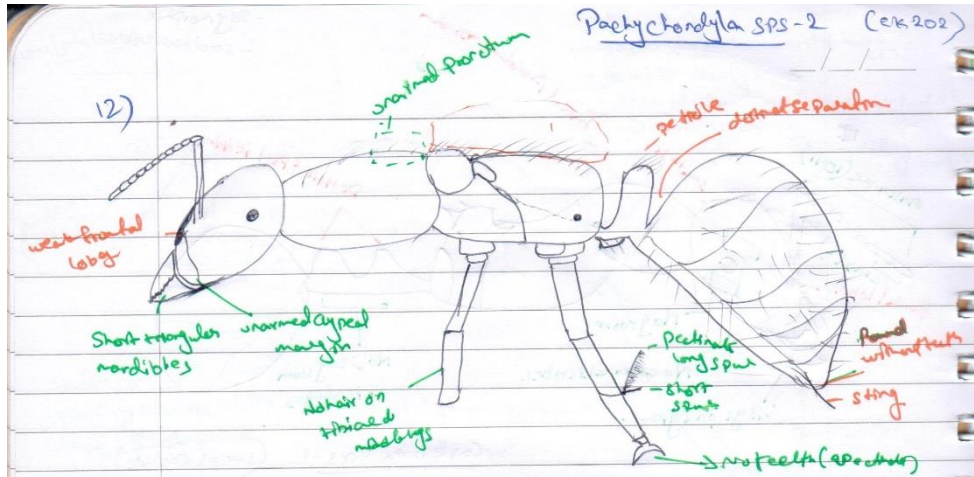 Pachychondyla SPS-2 (CK202)
12)
unarmed pronotum
petiole
distinct separation
weak frontal
lobe
Short triangular
mandibles
unarmed clypeal
margin
No hair on
tibia
pectinate
long spur
short
spur
without teeth
sting
no teeth